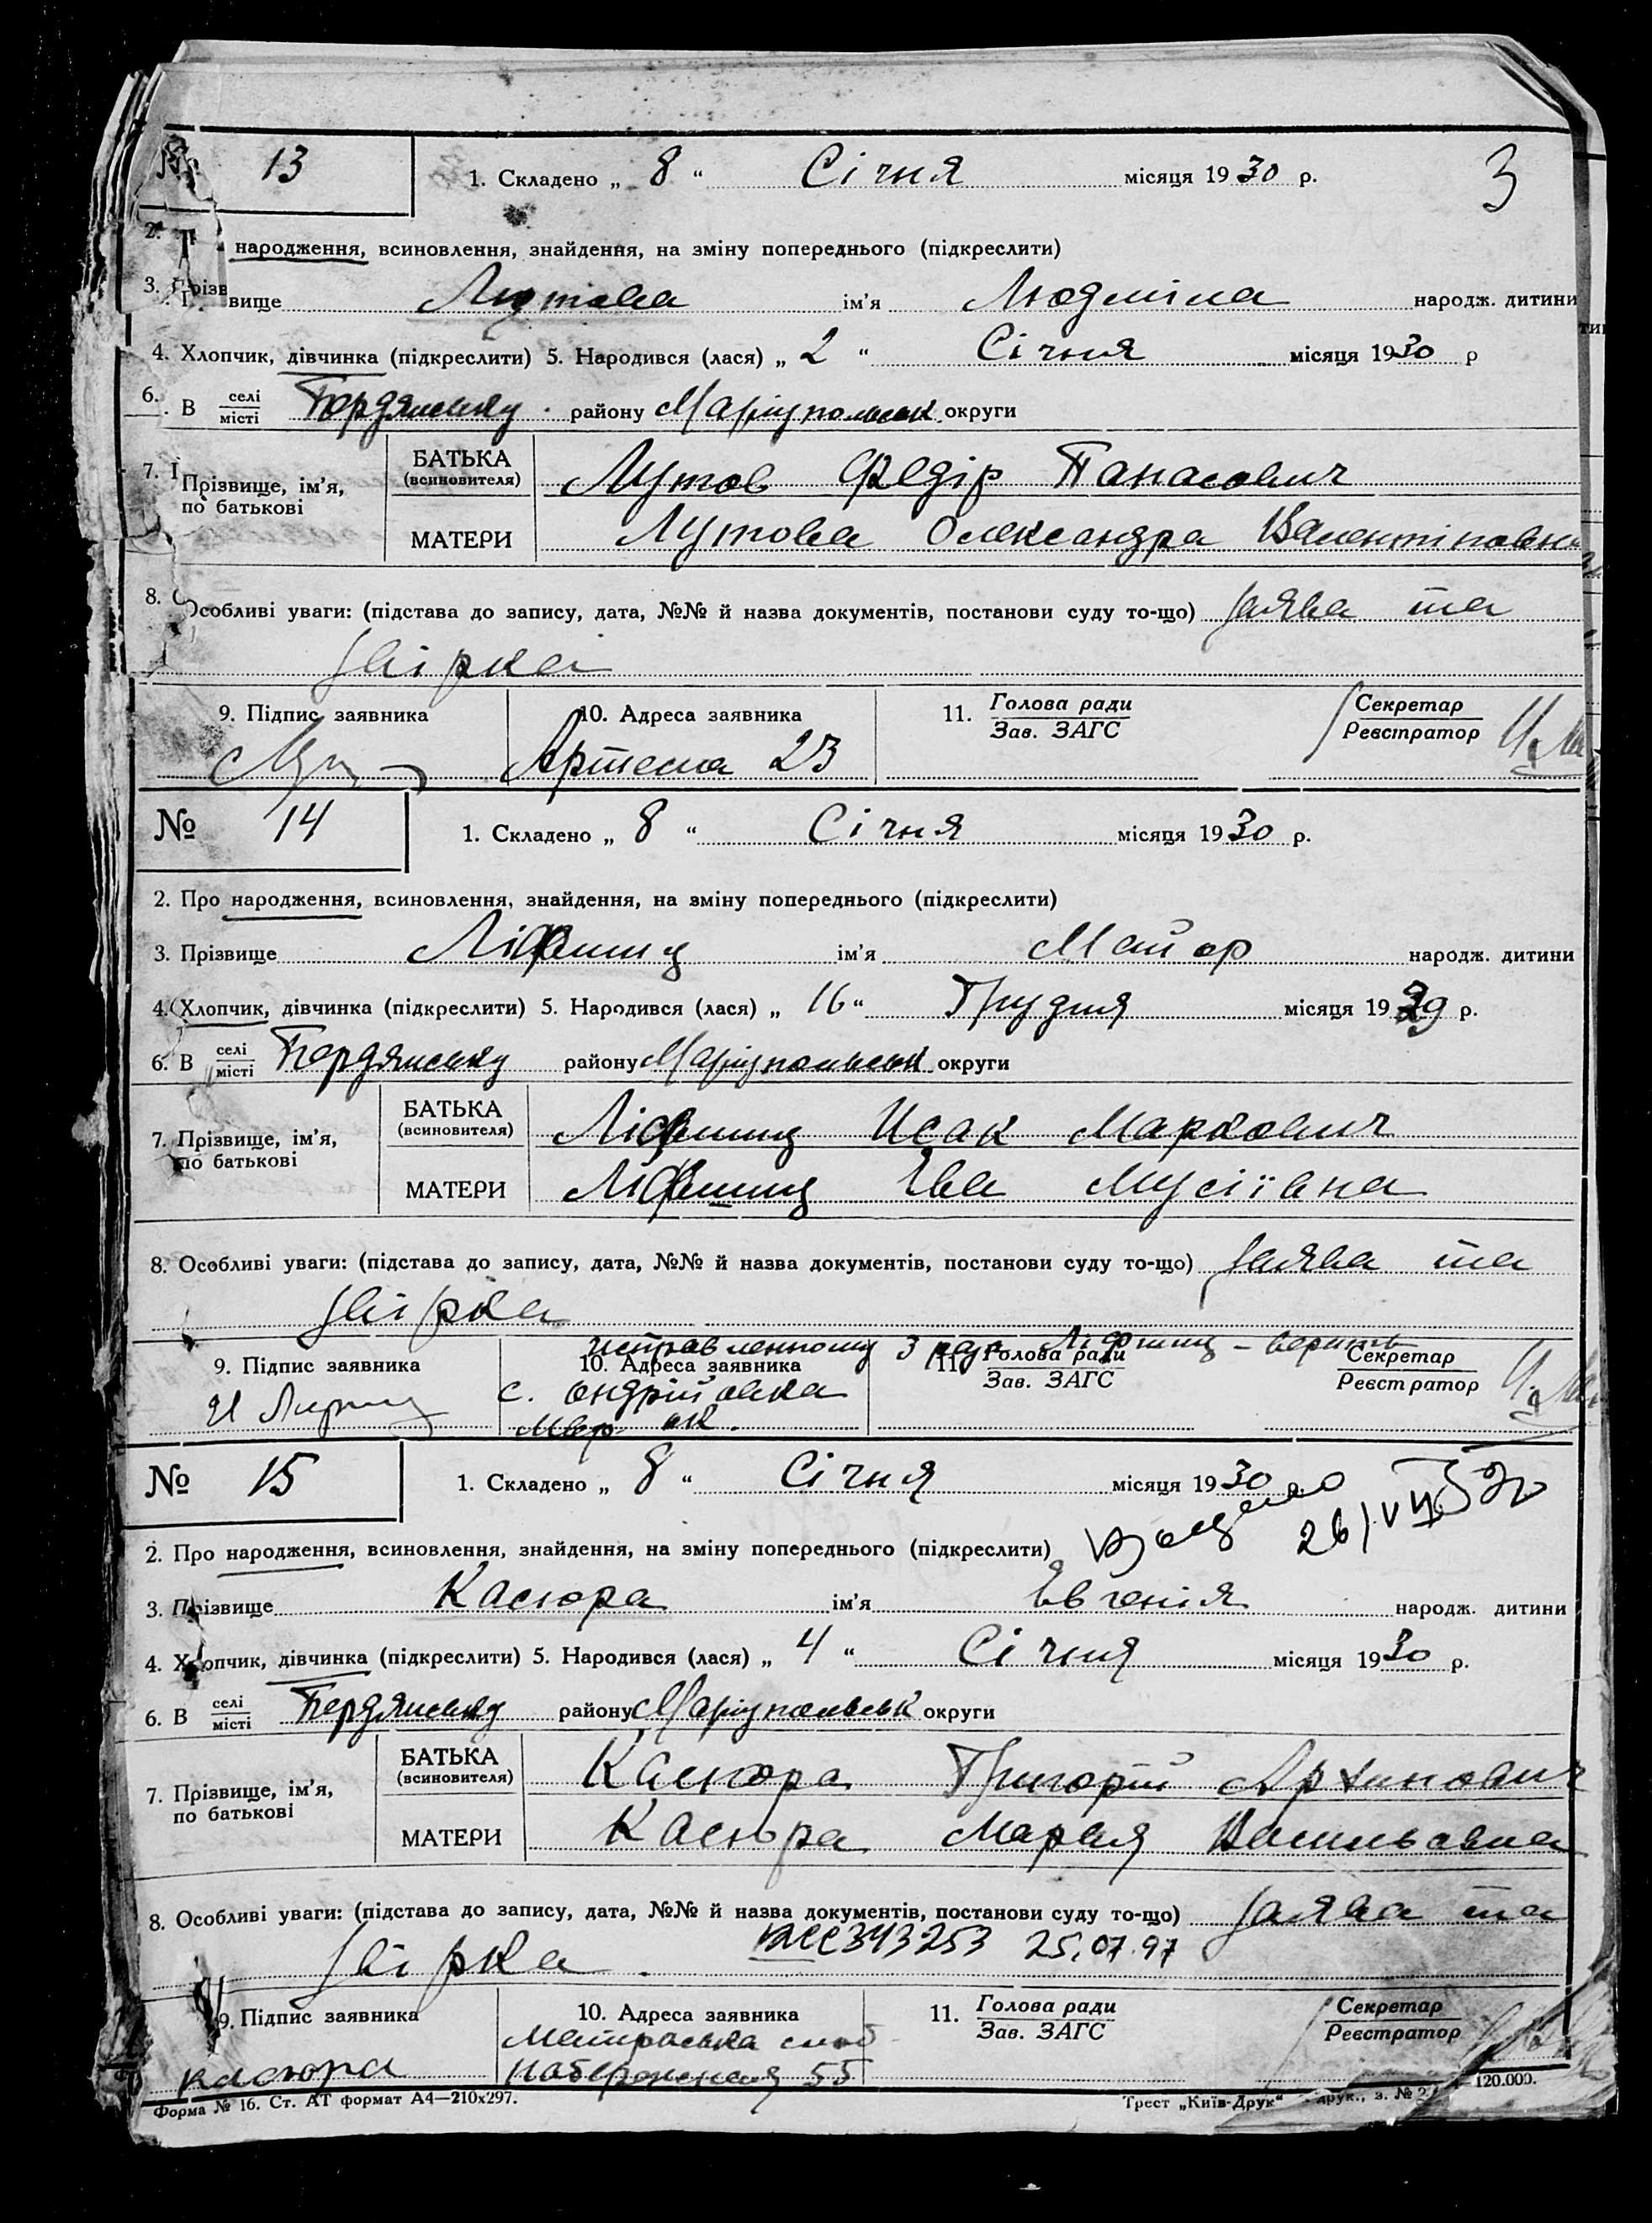 № 13 1. Складено „ 8 “ Січня місяця 1930 р. 3
2. народження, всиновлення, знайдення, на зміну попереднього (підкреслити)
3. Прізвище Лутова ім'я Людміла народж. дитини
4. Хлопчик, дівчинка (підкреслити) 5. Народився (лася) „ 2 “ Січня місяця 1930 р
6. В селі місті Бердянську району Маріупольськ округи
7. Прізвище, ім'я, по батькові БАТЬКА (всиновителя) Лутов Федір Панасович
МАТЕРИ Лутова Олександра Валентіновна
8. Особливі уваги: (підстава до запису, дата, №№ й назва документів, постанови суду то-що) Заява та
Звірка
9. Підпис заявника 10. Адреса заявника 11. Голова ради Зав. ЗАГС Секретар Реєстратор
Артема 23
№ 14 1. Складено „ 8 “ Січня місяця 1930 р.
2. Про народження, всиновлення, знайдення, на зміну попереднього (підкреслити)
3. Прізвище Ліфшиц ім'я Майор народж. дитини
4. Хлопчик, дівчинка (підкреслити) 5. Народився (лася) „ 16 “ Грудня місяця 1929 р.
6. В селі місті Бердянську району Маріупольськ округи
7. Прізвище, ім'я, по батькові БАТЬКА (всиновителя) Ліфшиц Исак Маркович
МАТЕРИ Ліфшиц Ева Мусіївна
8. Особливі уваги: (підстава до запису, дата, №№ й назва документів, постанови суду то-що) Заява та
Звірка
исправленному 3 раза Ліфшиц - верить
9. Підпис заявника 10. Адреса заявника 11. Голова ради Зав. ЗАГС Секретар Реєстратор
с. Ондріївка
№ 15 1. Складено „ 8 “ Січня місяця 1930
26/VII
2. Про народження, всиновлення, знайдення, на зміну попереднього (підкреслити)
3. Прізвище Касюра ім'я Евгенія народж. дитини
4. Хлопчик, дівчинка (підкреслити) 5. Народився (лася) „ 4 “ Січня місяця 1930 р.
6. В селі місті Бердянську району Маріупольськ округи
7. Прізвище, ім'я, по батькові БАТЬКА (всиновителя) Касюра Григорій
МАТЕРИ Касюра Мария Васильевна
8. Особливі уваги: (підстава до запису, дата, №№ й назва документів, постанови суду то-що) Заява та
Звірка 343253 25.07.97
9. Підпис заявника 10. Адреса заявника 11. Голова ради Зав. ЗАГС Секретар Реєстратор
касюра Набережная 55
Форма № 16. Ст. АТ формат А4—210х297. Трест „Київ-Друк“ друк., з. № 120.000.